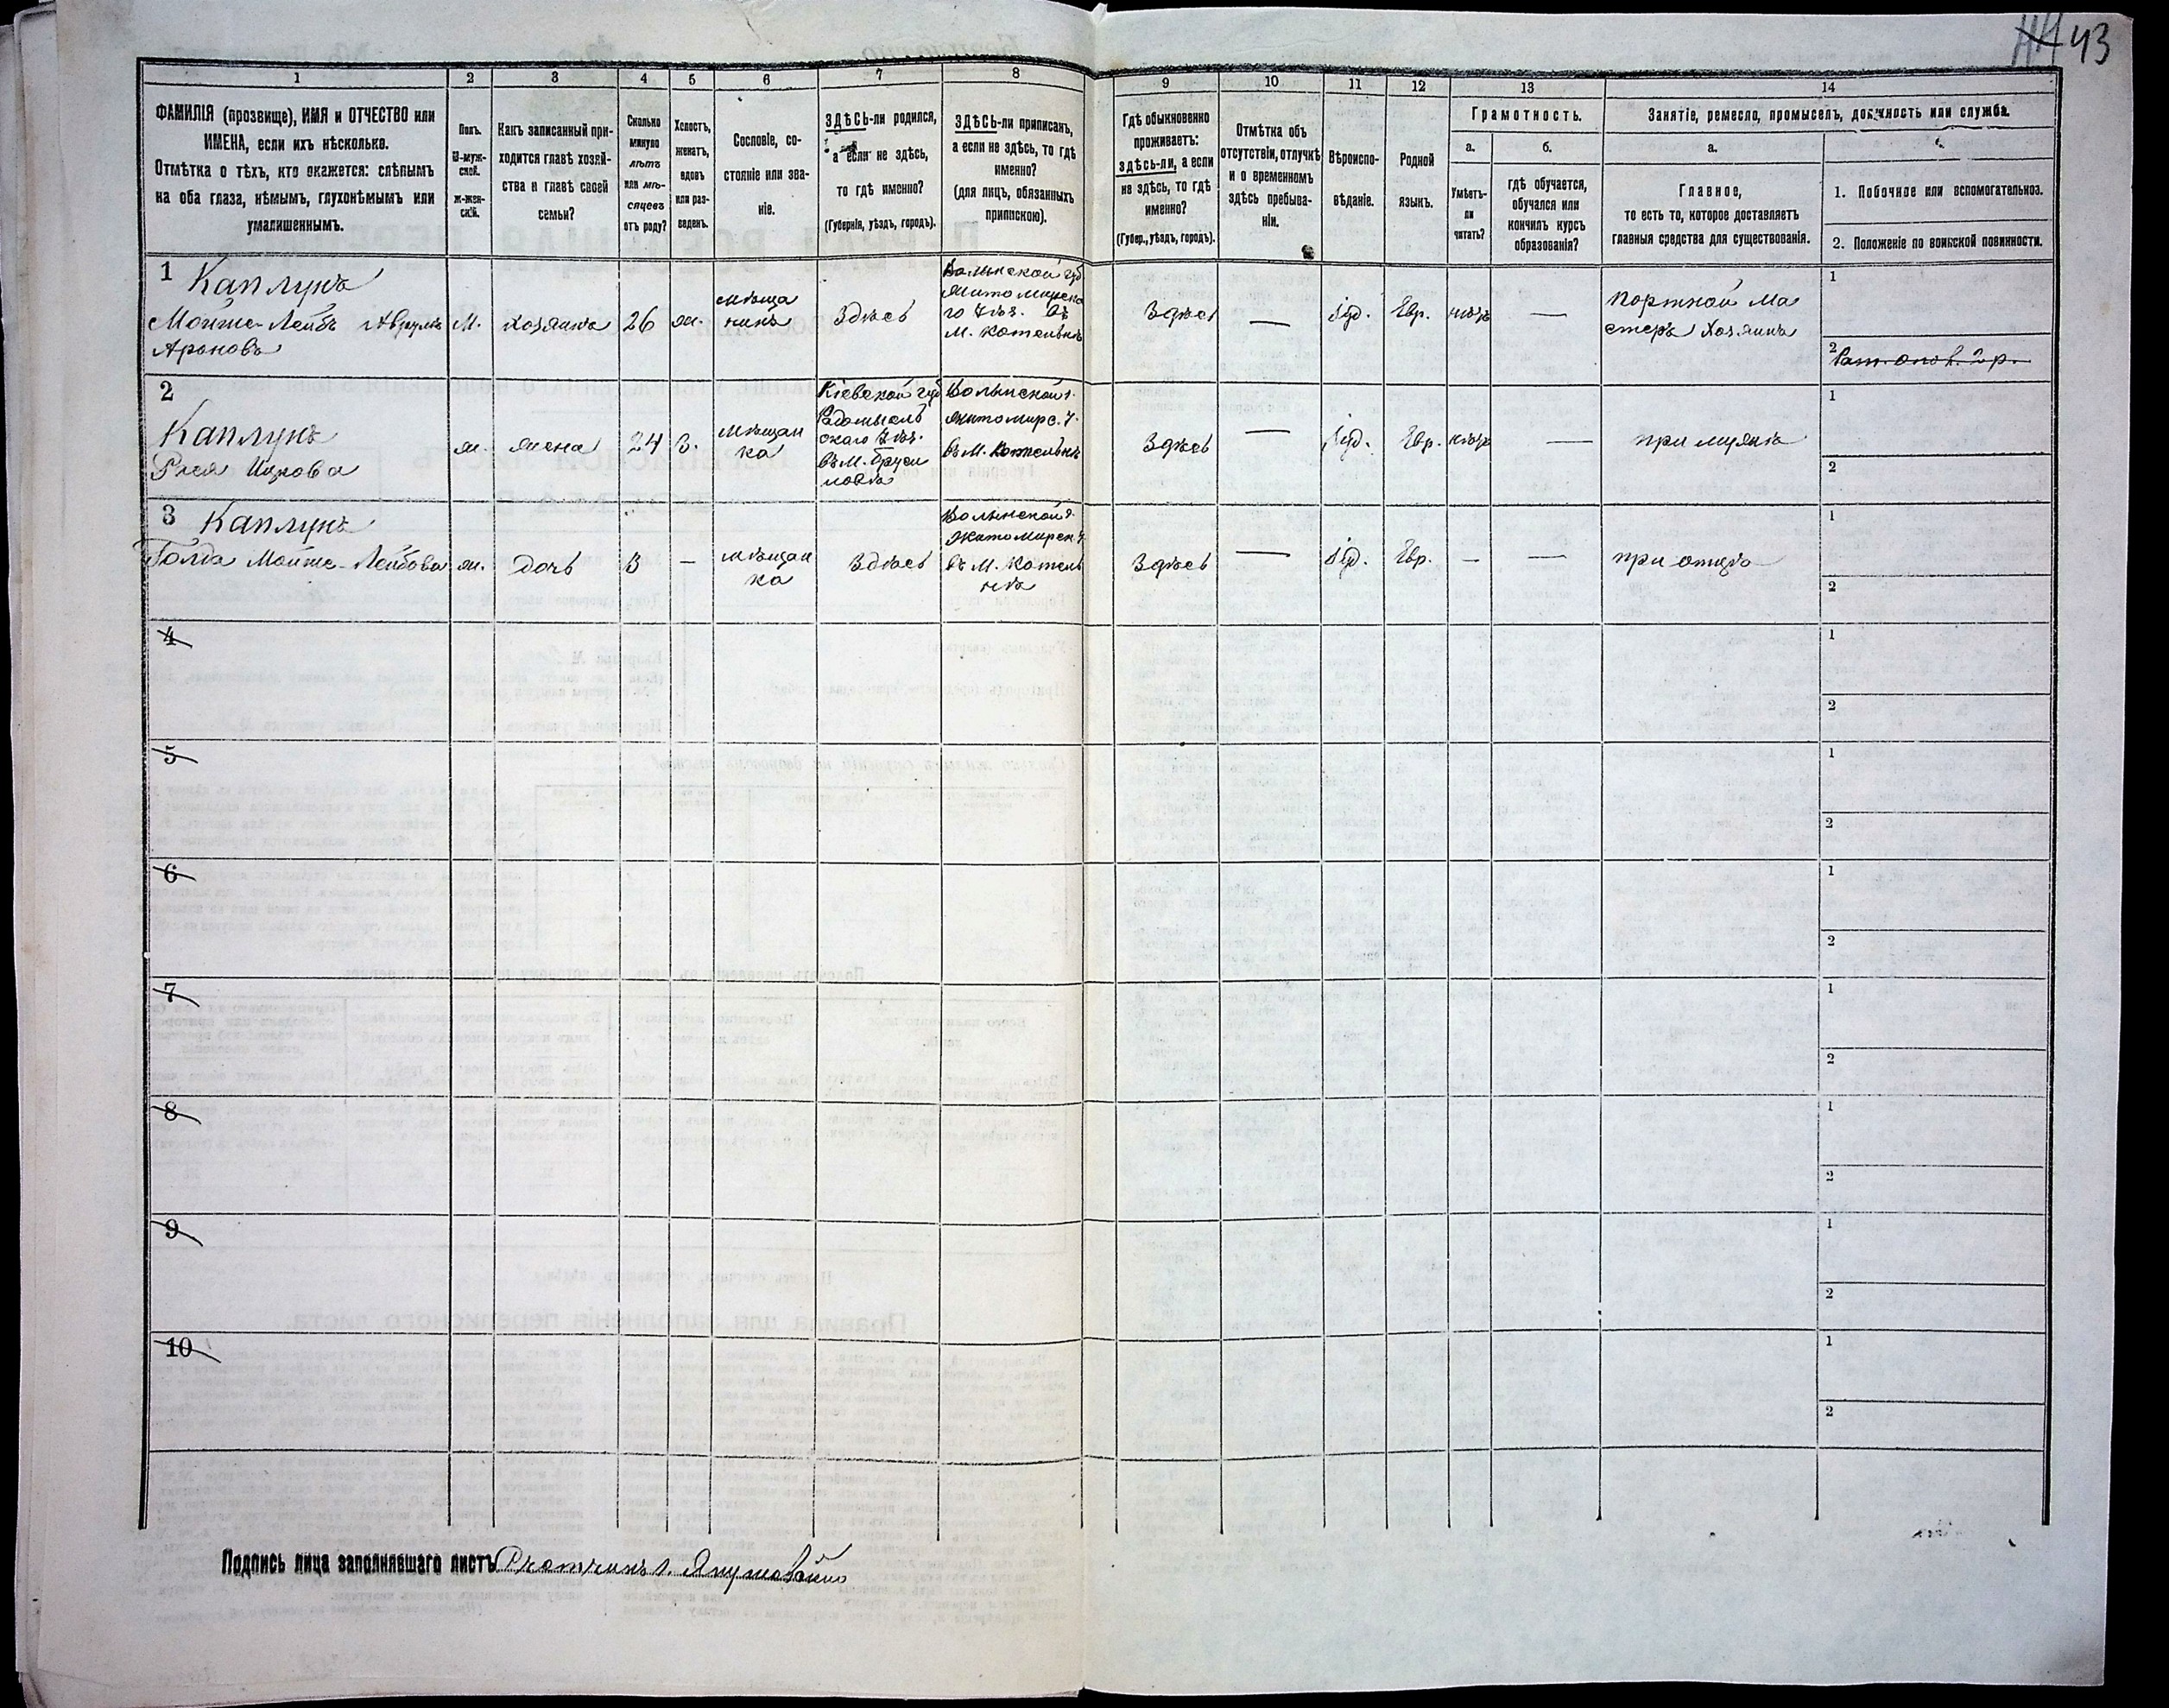 43
1
2
3
4
5
6
7
8
9
10
11
12
13
14
ФАМИЛІЯ (прозвище), ИМЯ и ОТЧЕСТВО или
ИМЕНА, если ихъ нѣсколько.
Отмѣтка о тѣхъ, кто окажется: слѣпымъ
на оба глаза, нѣмымъ, глухонѣмымъ или
умалишеннымъ.
Полъ.
М-муж-
ской.
ж-жен-
скій.
Какъ записанный при-
ходится главѣ хозяй-
ства и главѣ своей
семьи?
Сколько
минуло
лѣтъ
или мѣ-
сяцевъ
отъ роду?
Холостъ,
женатъ,
вдовъ
или раз-
веденъ.
Сословіе, со-
стояніе или зва-
ніе.
ЗДѢСЬ-ли родился,
а если не здѣсь,
то гдѣ именно?
(Губернія, уѣздъ, городъ).
ЗДѢСЬ-ли приписанъ,
а если не здѣсь, то гдѣ
именно?
(для лицъ, обязанныхъ
припискою).
Гдѣ обыкновенно
проживаетъ:
здѣсь-ли, а если
не здѣсь, то гдѣ
именно?
(Губер., уѣздъ, городъ).
Отмѣтка объ
отсутствіи, отлучкѣ
и о временномъ
здѣсь пребыва-
ніи.
Вѣроиспо-
вѣданіе.
Родной
языкъ.
Грамотность.
а.
Умѣетъ-
ли
читать?
б.
гдѣ обучается,
обучался или
кончилъ курсъ
образованія?
Занятіе, ремесло, промыселъ, должность или служба.
а.
Главное,
то есть то, которое доставляетъ
главныя средства для существованія.
1. Побочное или вспомогательное.
2. Положеніе по воинской повинности.
1 Каплунъ
Мойше-Лейбъ Аврумъ
Ароновъ
М.
хозяинъ
26
ж.
мѣща
нинъ
Здѣсь
Волынской губ
Житомирска
го Уѣз. въ
м. Котельнѣ
Здѣсь
—
Іуд.
Евр.
—
Портной Ма
стеръ Хозяинъ
1
2 Рат. опол. 2 р.
2
Каплунъ
Рися Ицкова
ж.
жена
24
З.
мѣщан
ка
Кіевской губ
Радомысль
скаго Уѣз.
въ М. Бруси
ловѣ
Волынской г.
Житомирс. у.
въ М. Котельнѣ
Здѣсь
—
Іуд.
Евр.
—
при мужѣ
1
2
3 Каплунъ
Голда Мойше-Лейбова
ж.
дочь
3
—
мѣщан
ка
Здѣсь
Волынской г.
Житомирск. у.
въ М. Котель
нѣ
Здѣсь
—
Іуд.
Евр.
—
—
при отцѣ
1
2
4
1
2
5
1
2
6
1
2
7
1
2
8
1
2
9
1
2
10
1
2
Подпись лица заполнявшаго листъ